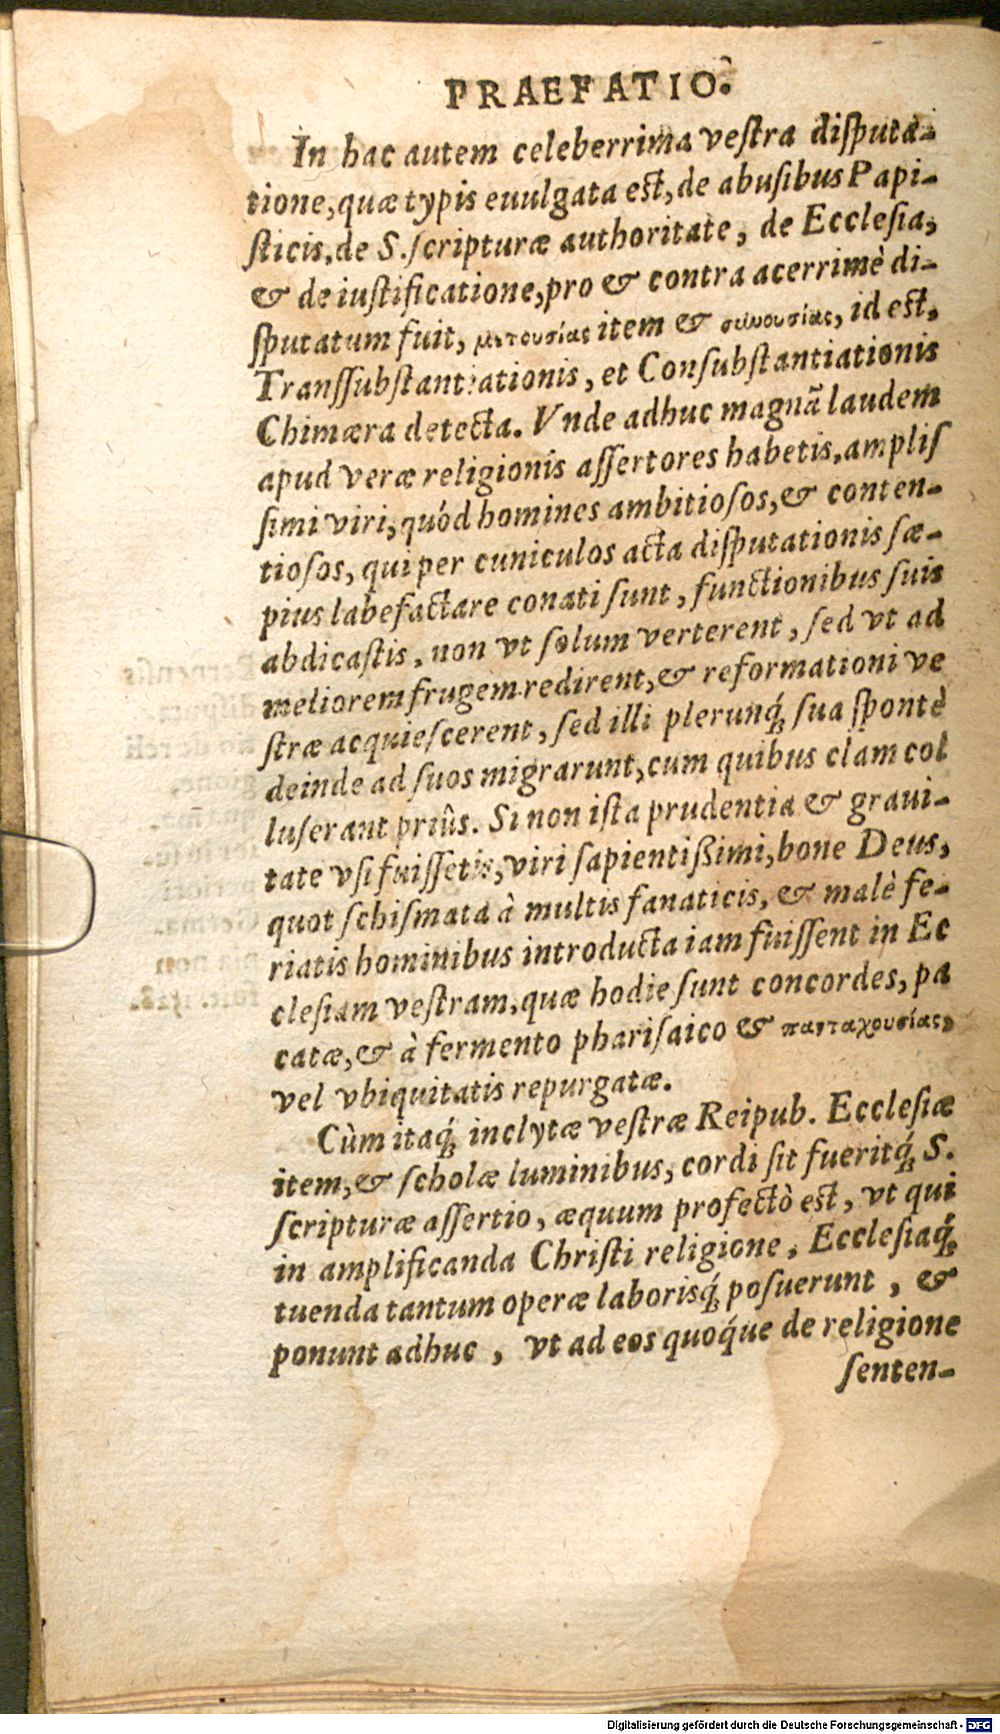 PRAEFATIO.
In hac autem celeberrima vestra disputa-
tione, quæ typis euulgata est, de abusibus Papi-
sticis, de S. scripturæ authoritate, de Ecclesia,
& de iustificatione, pro & contra acerrimè di-
sputatum fuit, μετουσίας item & συνουσίας, id est,
Transsubstantiationis, et Consubstantiationis
Chimæra detecta. Vnde adhuc magnã laudem
apud veræ religionis assertores habetis, amplis
simi viri, quód homines ambitiosos, & conten-
tiosos, qui per cuniculos acta disputationis sæ-
pius labefactare conati sunt, functionibus suis
abdicastis, non vt solum verterent, sed vt ad
meliorem frugem redirent, & reformationi ve
stræ acquiescerent, sed illi plerunq́; sua spontè
deinde ad suos migrarunt, cum quibus clam col
luserant priûs. Si non ista prudentia & graui-
tate vsi fuissetis, viri sapientißimi, bone Deus,
quot schismata à multis fanaticis, & malè fe-
riatis hominibus introducta iam fuissent in Ec
clesiam vestram, quæ hodie sunt concordes, pa
catæ, & à fermento pharisaico & πανταχουσίας,
vel vbiquitatis repurgatæ.
Cùm itaq́; inclytæ vestræ Reipub. Ecclesiæ
item, & scholæ luminibus, cordi sit fueritq́; S.
scripturæ assertio, æquum profectò est, vt qui
in amplificanda Christi religione, Ecclesiaq́;
tuenda tantum operæ laborisq́; posuerunt, &
ponunt adhuc, vt ad eos quoq́ue de religione
senten-
Digitalisierung gefördert durch die Deutsche Forschungsgemeinschaft - DFG